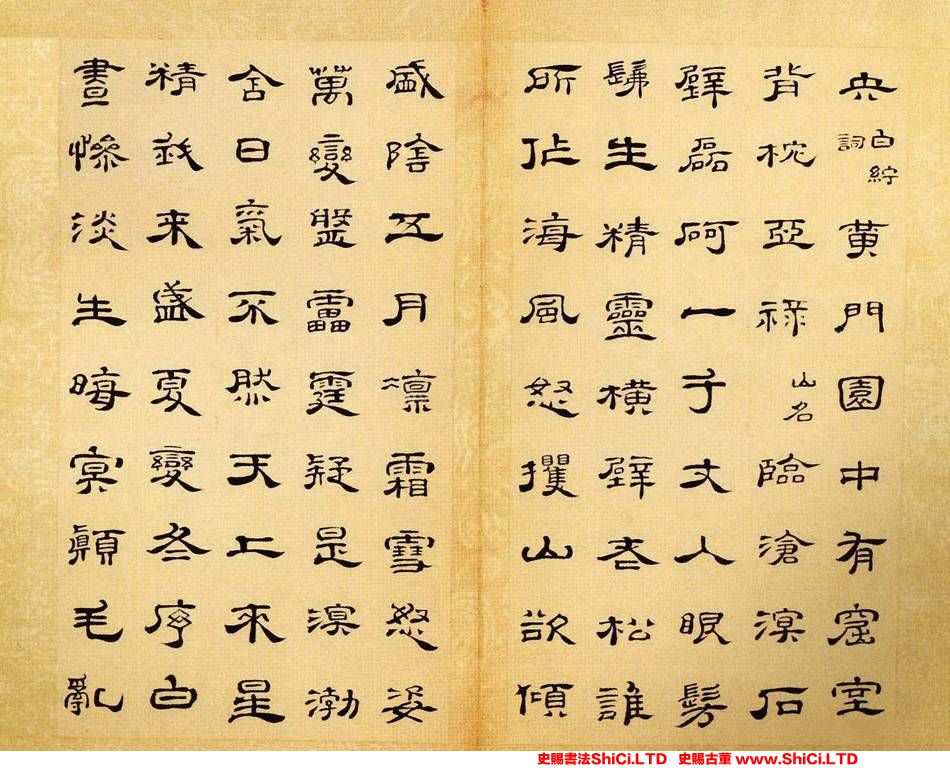 央白紵詞黃門園中有窟室
背枕亞祿山名臨滄溟石
壁磊砢一千丈人眼髣
髴生精靈橫壁老松誰
所作海風怒攫山欲傾
盛陰五月凛霜雪怒姿
萬變盤靁霆疑是溟渤
舍日氣不然天上來星
精来盛夏變冬序白
晝慘淡生晦冥顛毛亂
史賜書法ShiCi.LTD 史賜古董 www.ShiCi.LTD